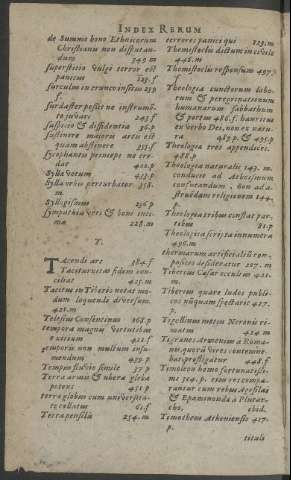 INDEX RERUM
de Summo bono Ethnicorum
Christiano non disputan-
dum 349 m
superstitio vulgò terror est
panicus
surculum in crure
surdaster postic no instrumē-
to juvari 243 f
suspicio & diffidentia 56.p
sustinere majoris artis est
quam abstinere 351.f
sycophantis principi ne cre-
dat 402.p
Syllæ votum 433.p
Syllæ urbis perturbator 358.
m
Syllogismus 236 p
sympathia veri & boni inti-
ma 228.m
T.
TAcendi ars 384.f
Taciturnitas fidem con-
ciliat 425.m
Tacitus in Tiberio notat mo-
dum loquendi diversum.
421.m
Telesius Consentinus 168.p
tempora magnis virtutibus
exitium 421.f
temporis non multum insu-
mendum 439.p
Tempus fluvio simile 37 p
Terra armis & ubere glebæ
potens 451 p
terræ globus cum universita-
te collatus 61.f
Terra pensilis 254.m
terrores panici qui 129.m
Themistoclis dictum incivile
446.m
Themistoclis responsum 497.
f
Theologia cunctorum labo-
rum & peregrinationum
humanarum sabbathum
& portus 486.f. hauritur
ex verbo Dei, non ex natu-
ra 489.p. & 495.p
Theologiæ tres appendices.
488.p
Theologia naturalis 143. m.
conducit ad Atheismum
confutandum, non ad a-
struendam religionem 144.
p.
Theologia tribus constat par-
tibus 81.p
Theologica scripta innumera
496.m
thermarum artificialiū com-
positio desideratur 217.m
Tiberius Cæsar occultus 421.
m.
Tiberius quare ludos publi-
cos nūquam spectarit 417.
p.
Tigellinus metus Neronis ri-
matur 424 m
Tigranes Armenius à Roma-
nis, quorū vires contemne-
bat profligatur 448.f
Timoleon homo fortunatissi-
mus 514.p. ejus res compa-
rantur cum rebus Agesilai
& Epaminondæ à Plutar-
cho. ibid.
Timotheus Atheniensis 417.
p.
titulis